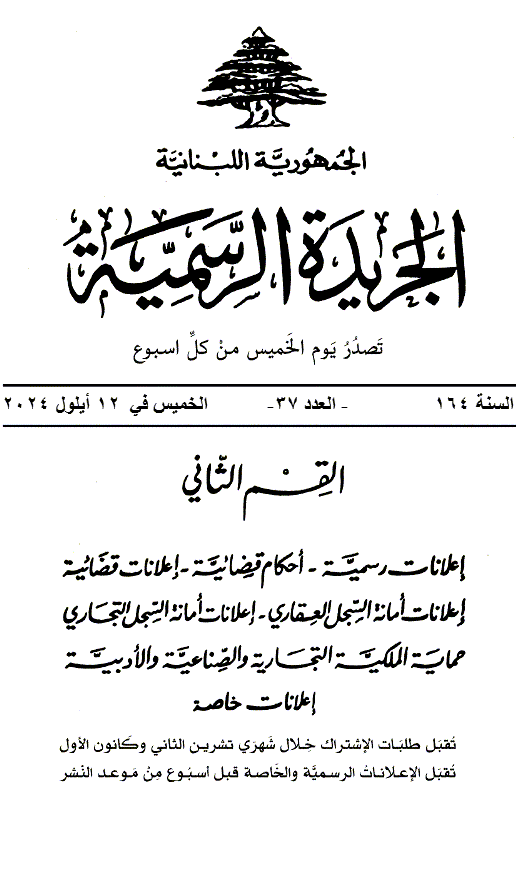 الجُمهُوريَّة اللبْنانيَّة
الجَريدَة الرسَّمِيَّة
تَصدُرُ يَوم الخَميس منْ كلِّ اسبوع
السنة ١٦٤ - العدد ٣٧- الخميس في ١٢ أيلول ٢٠٢٤
القِسْم الثّاني
إعلانات رسميَّة - أحكام قضائيَّة - إعلانات قضائية
إعلانات أمانة السّجل العقاري - إعلانات أمانة السّجل التجاري
حماية الملكيَّة التجارية والصّناعيَّة والأدبيَّة
إعلانات خاصة
تُقبَل طلبَات الإشتراك خِلال شَهرَي تشرين الثاني وكَانون الأول
تُقبَل الإعلاناتُ الرسميَّة والخَاصة قبل أسبُوع مِنْ مَوعد النّشر